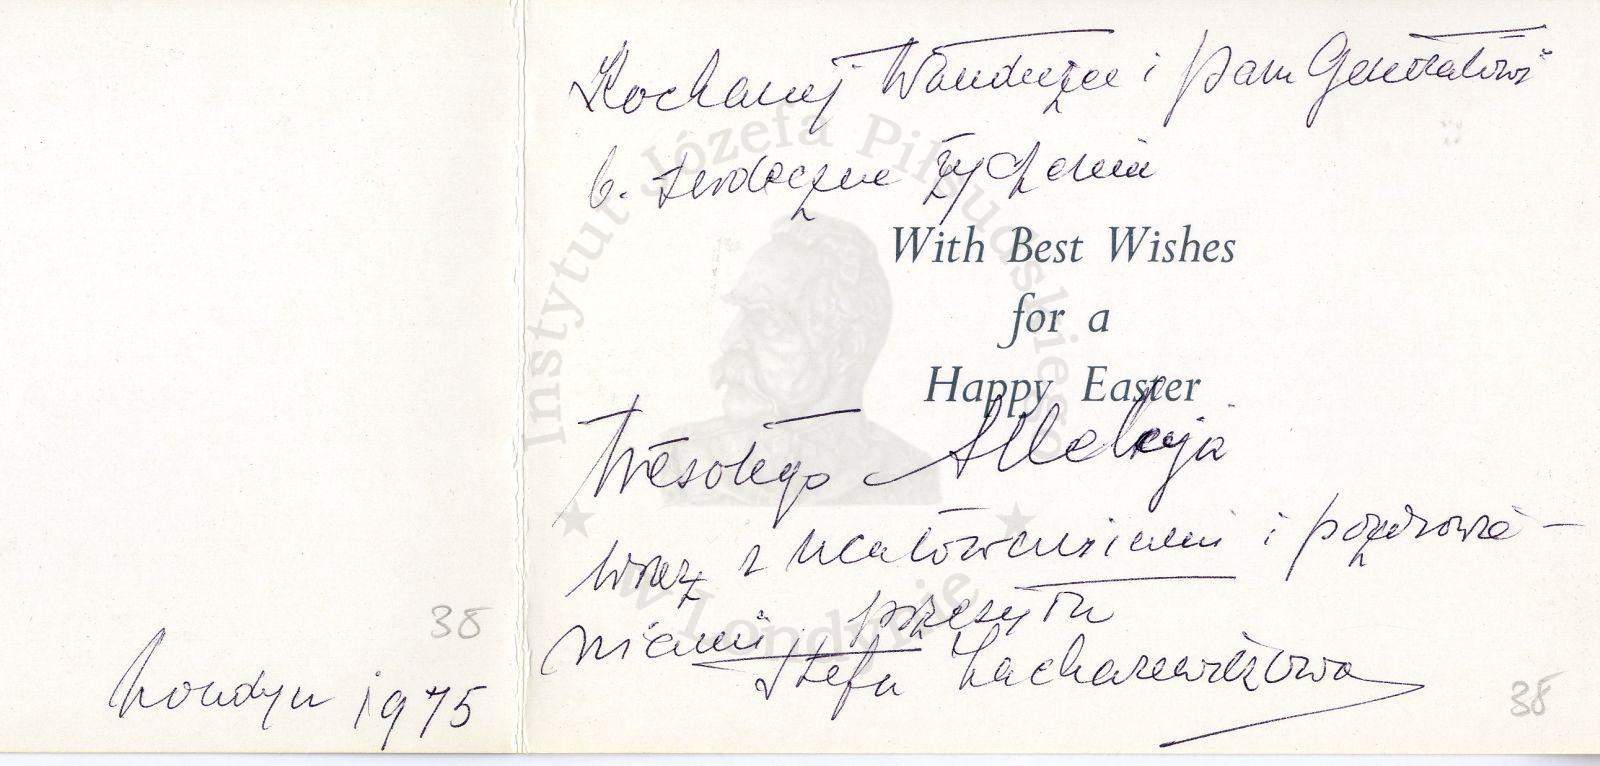 38
Londyn 1975
Kochanej Wandeczce i Panu Generałowi
b. serdeczne życzenia
With Best Wishes
for a
Happy Easter
Wesołego Alleluja
wraz z ucałowaniami i pozdrowie-
niami przesyła
Stefa Zacharewiczowa
38
Instytut Józefa Piłsudskiego
w Londynie